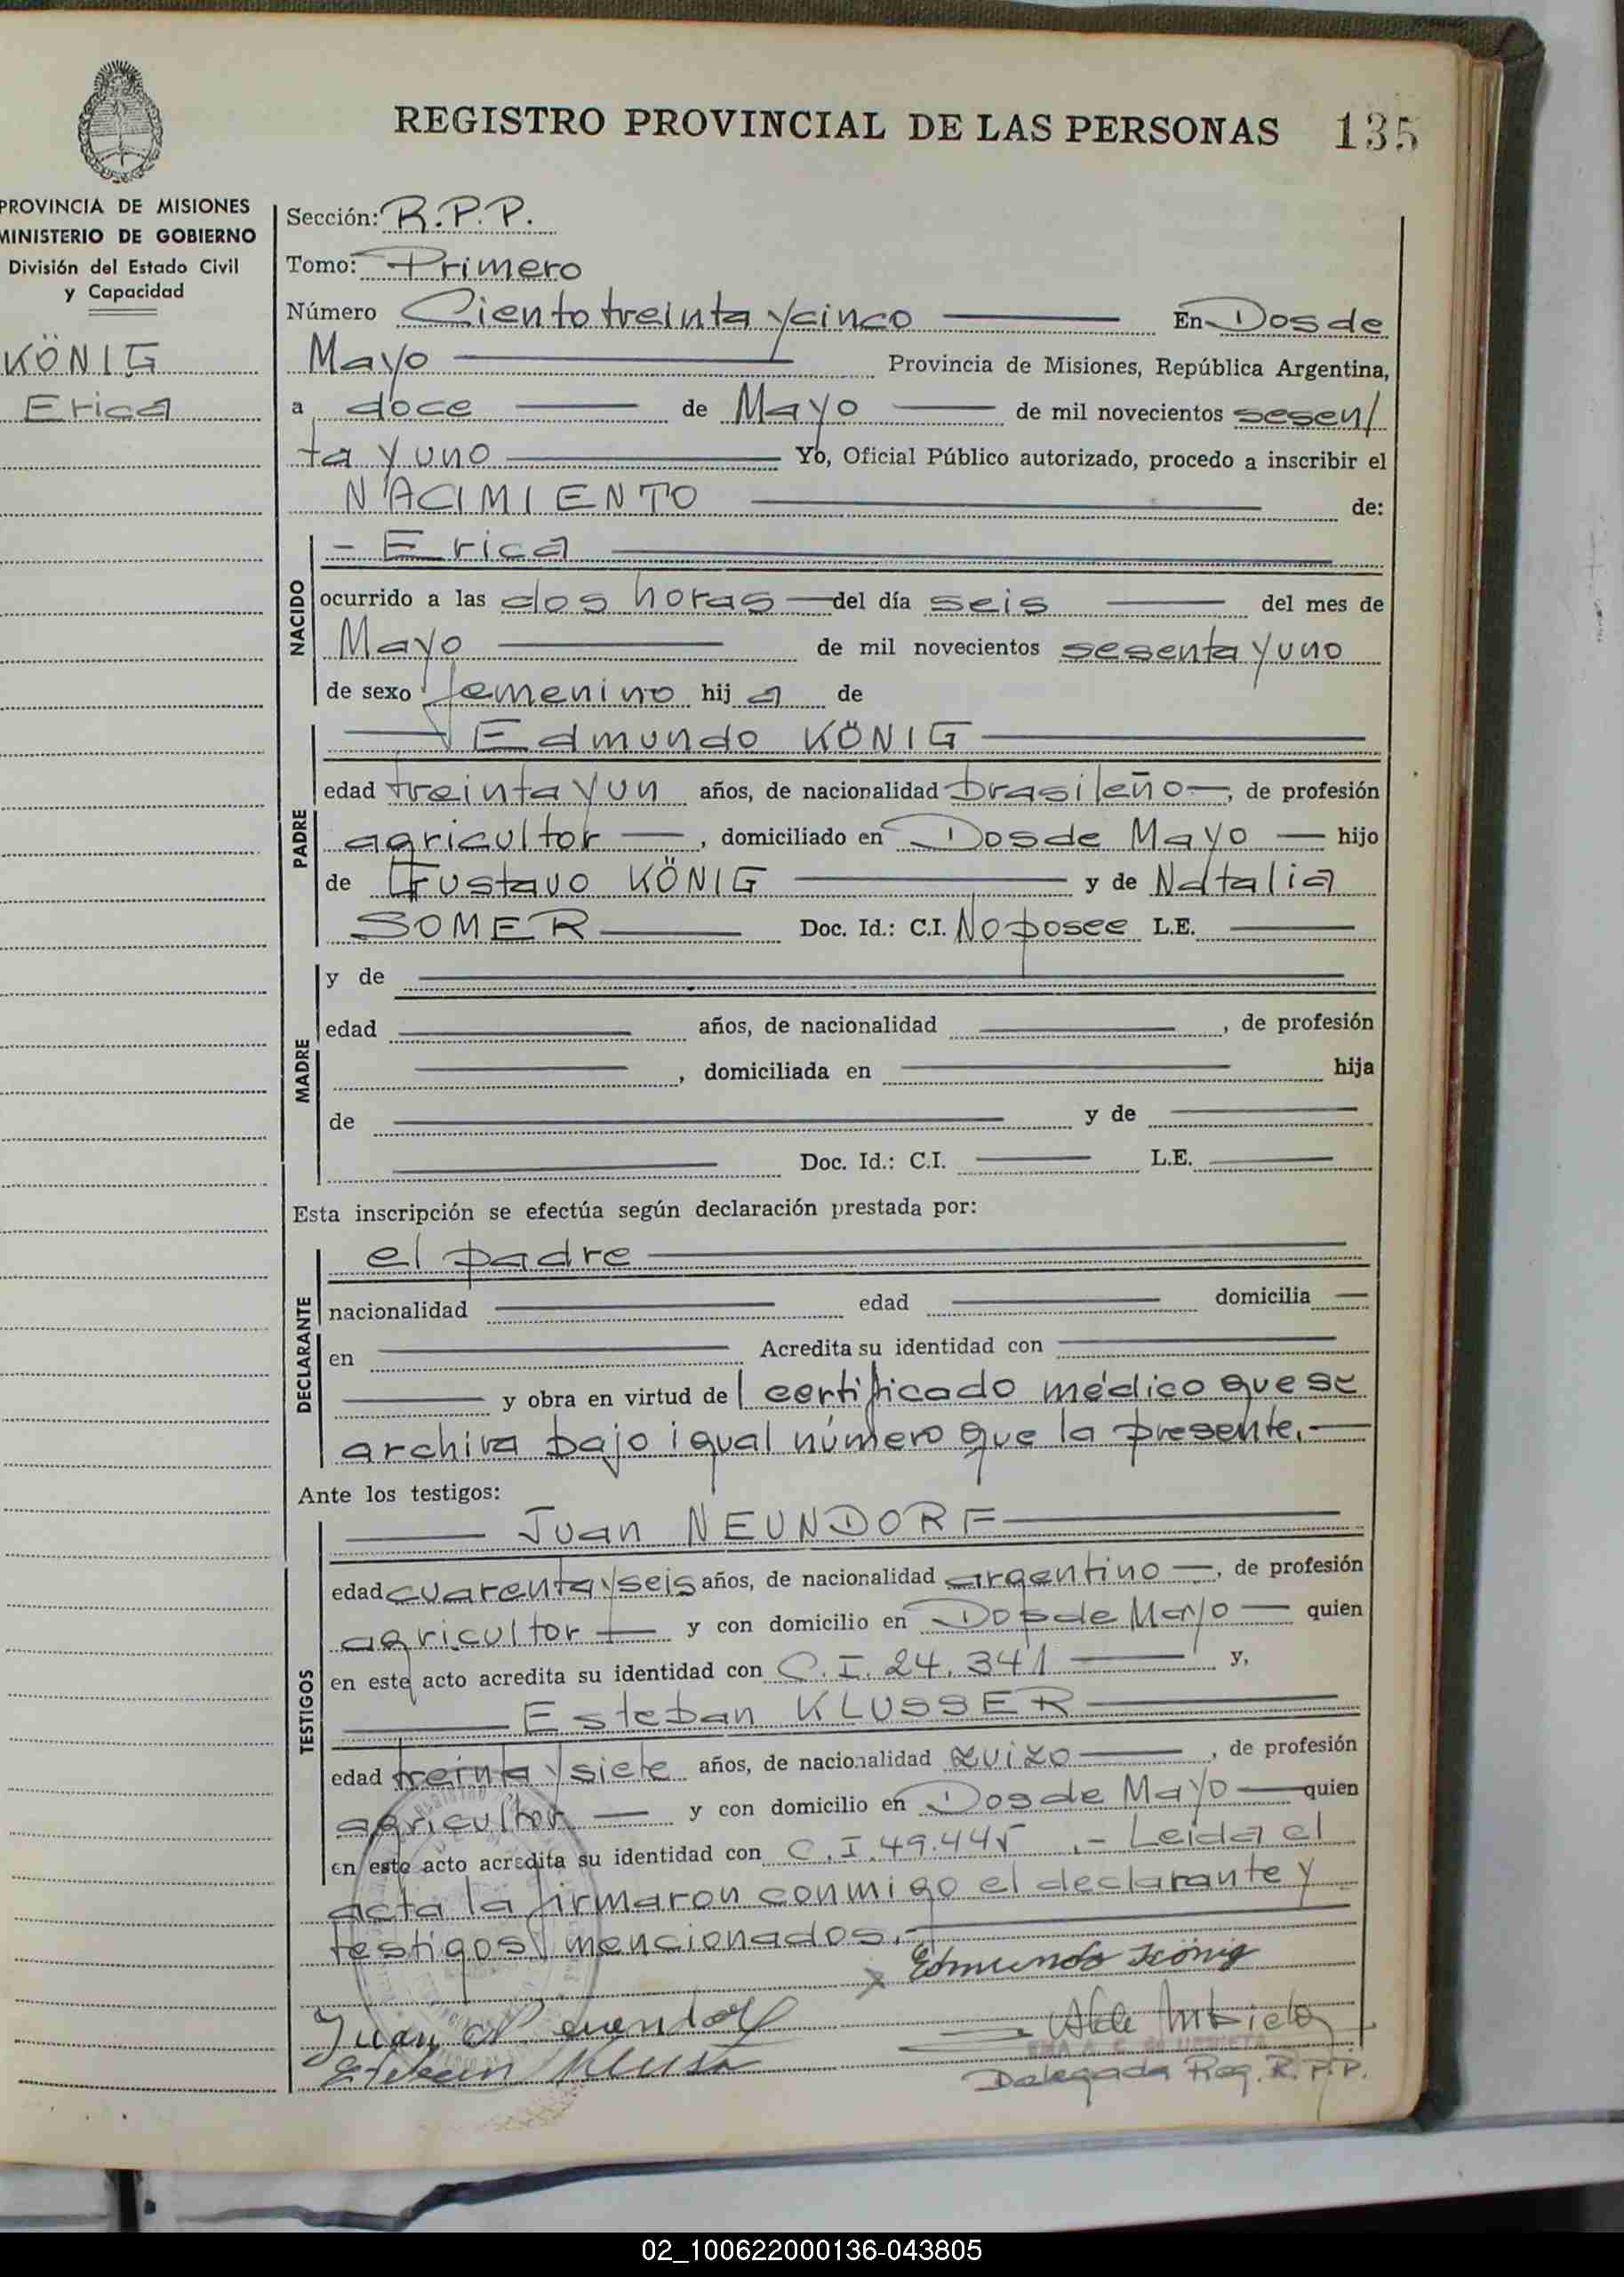 REGISTRO PROVINCIAL DE LAS PERSONAS 135
PROVINCIA DE MISIONES
MINISTERIO DE GOBIERNO
División del Estado Civil
y Capacidad
KÖNIG
Erica
Sección: R.P.P.
Tomo: Primero
Número Ciento treinta y cinco En Dos de
Mayo Provincia de Misiones, República Argentina,
a doce de Mayo de mil novecientos sesen/
ta y uno Yo, Oficial Público autorizado, procedo a inscribir el
NACIMIENTO de:
NACIDO
- Erica
ocurrido a las dos horas del día seis del mes de
Mayo de mil novecientos sesenta y uno
de sexo femenino hij a de
PADRE
Edmundo KÖNIG
edad treinta y un años, de nacionalidad brasileño, de profesión
agricultor, domiciliado en Dos de Mayo hijo
de Gustavo KÖNIG y de Natalia
SOMER Doc. Id.: C.I. No posee L.E.
MADRE
y de
edad años, de nacionalidad , de profesión
, domiciliada en hija
de y de
Doc. Id.: C.I. L.E.
Esta inscripción se efectúa según declaración prestada por:
DECLARANTE
el padre
nacionalidad edad domicilia
en Acredita su identidad con
y obra en virtud de certificado médico que se
archiva bajo igual número que la presente.-
Ante los testigos:
TESTIGOS
Juan NEUNDORF
edad cuarenta y seis años, de nacionalidad argentino, de profesión
agricultor y con domicilio en Dos de Mayo quien
en este acto acredita su identidad con C.I. 24.341 y,
Esteban KLUSSER
edad treinta y siete años, de nacionalidad zuizo, de profesión
agricultor y con domicilio en Dos de Mayo quien
en este acto acredita su identidad con C.I. 49.445 .- Leida el
acta la firmaron conmigo el declarante y
testigos mencionados.
x Edmundo König
Juan Neuendorf
Esteban
Delegada Reg. R.P.P.
02_100622000136-043805